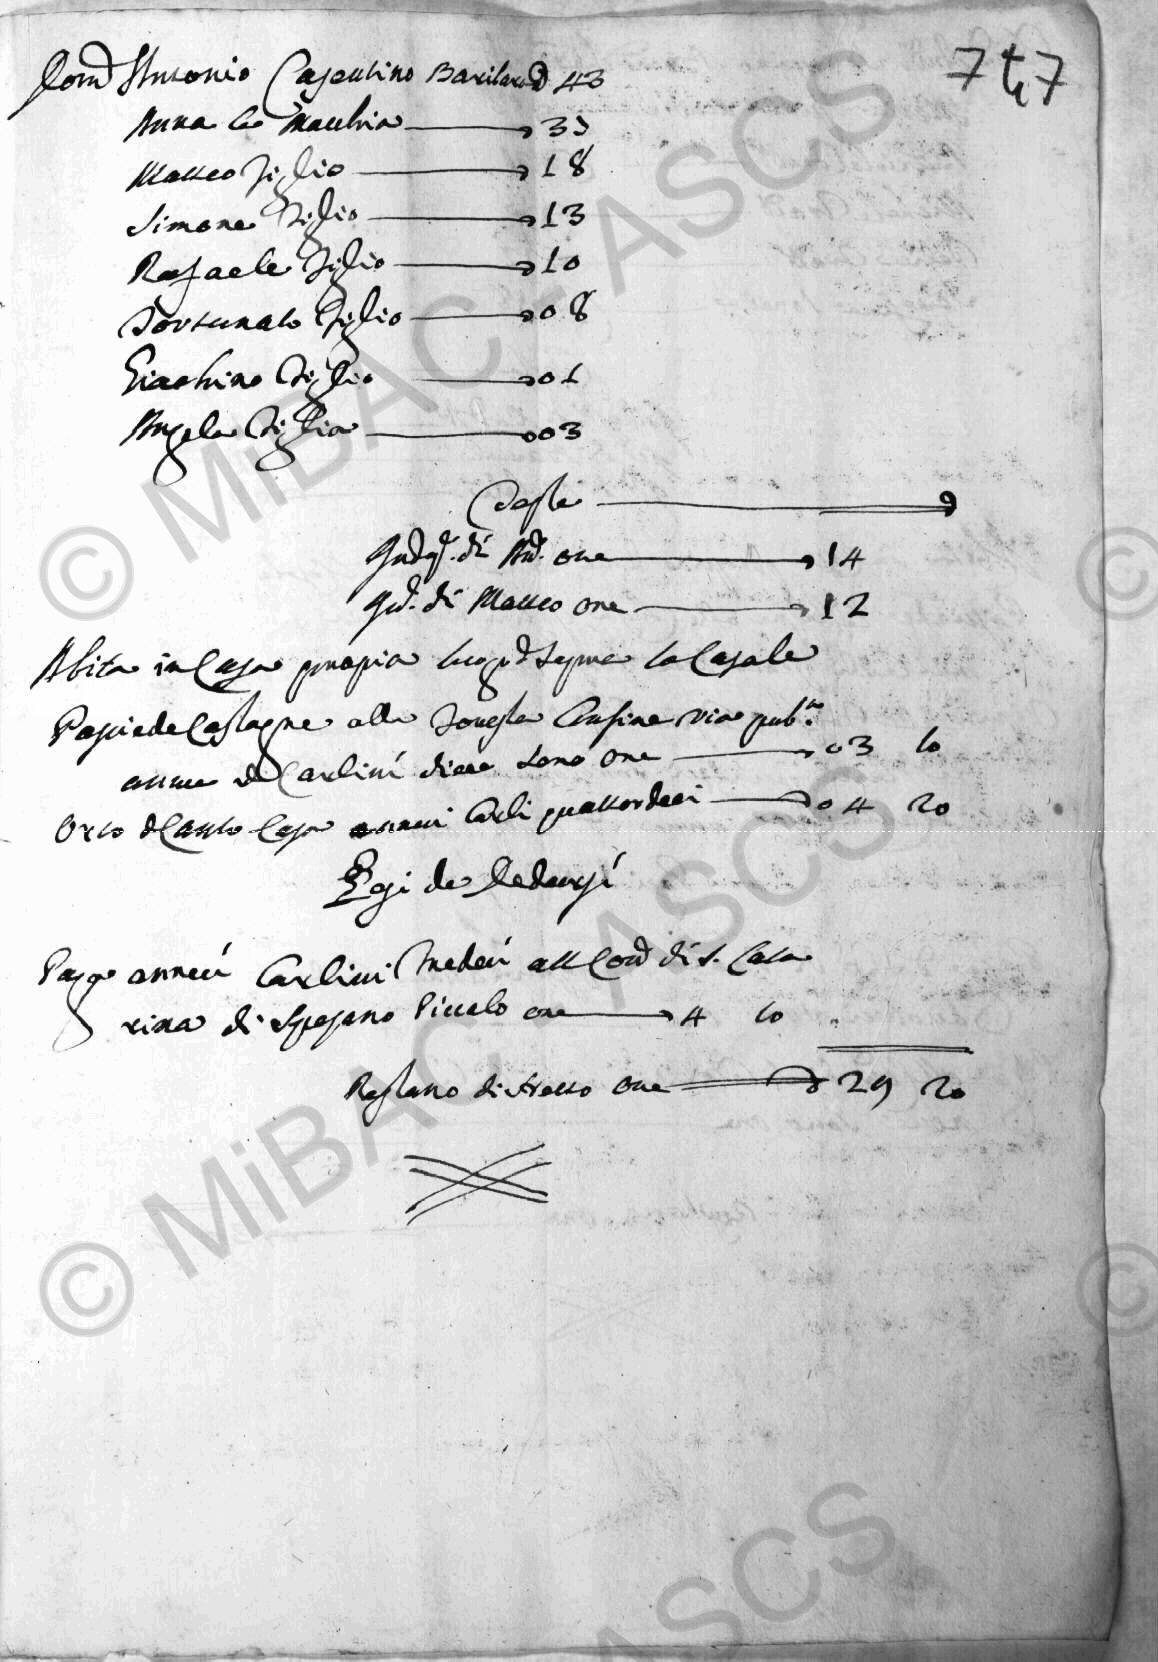 747
Antonio Casentino Barilaro 43
Anna la Macchia 35
Matteo figlio 18
Simone figlio 13
Rafaele figlio 10
Fortunato figlio 08
Giachino figlio 01
Angela figlia 03
Teste
Ind. di Ant. one 14
Ind. di Matteo one 12
Abita in Casa propia luogo d. la Casale
Possiede Castagne alla Confine via pub.
annui Carlini dieci sono one 03 10
Orto accanto Casa annui Carli quattordeci 04 20
Pesi da dedursi
Paga annui Carlini tredeci alla di S. Cata
rina di Spezano Piccolo one 4 10
Restano di netto one 29 20
© MiBAC - ASCS
© MiBAC - ASCS
ASCS
©
©